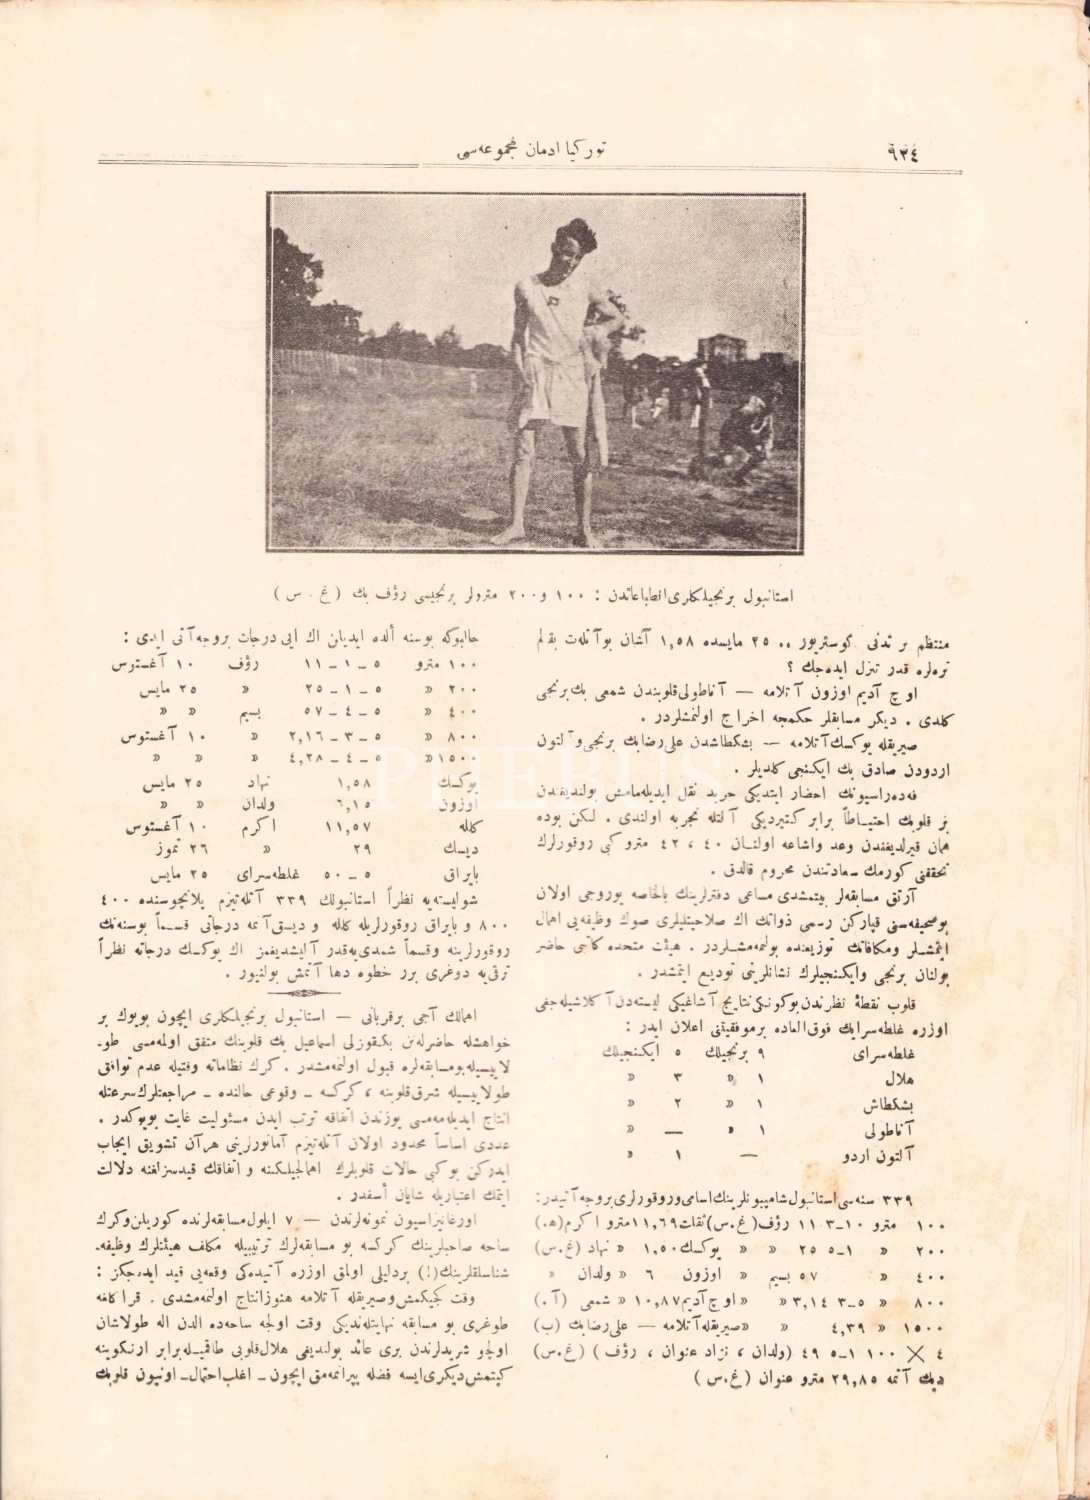 ٩٣٤
توركيا ادمان مجموعه‌سی
استانبول برنجيلكلری انطباعاتدن : ١٠٠ و ٢٠٠ مترولر برنجيسی رؤف بك (غ . س)
منتظم بر تدنی كوستريور .. ٢٥ مايسده ١,٥٨ آشان بو آتله‌ت بقالم
نره‌لره قدر تنزل ايده‌جك ؟
اوچ آديم اوزون آتلامه — آناطولی قلوبندن شمعی بك برنجی
كلدی . ديكر مسابقلر حكمجه اخراج اولنمشلردر .
صيريقله يوكسك آتلامه — بشكطاشدن علی رضا بك برنجی و آلتون
اردودن صادق بك ايكنجی كلديلر .
فه‌ده‌راسيونك احضار ايتديكی حربه نقل ايديله‌مامش بولنديغندن
بر قلوبك احتياطاً برابر كتيرديكی آلتله تجربه اولندی . لكن بوده
همان قيرلديغندن وعد واشاعه اولنان ٤٠ ، ٤٢ مترو كبی روقورلرك
تحققنی كورمك سعادتندن محروم قالدق .
آرتق مسابقه‌لر بيتمشدی مساعی دفترلرينك بالخاصه يوروجی اولان
بو صحيفه‌سنی قپاركن رسمی ذواتك اك صلاحيتليلری صوك وظيفه‌يی اهمال
ايتمشلر ومكافاتك توزيعنده بولنمه‌مشلردر . هيئت متحده كاتبی حاضر
بولنان برنجی وايكنجيلرك نشانلرينی توديع ايتمشدر .
قلوب نقطهٔ نظرندن بوكونكی نتايج آشاغيكی ليسته‌دن آكلاشيله‌جغی
اوزره غلطه‌سرايك فوق العاده بر موفقيتنی اعلان ايدر :
غلطه‌سرای ٩ برنجيلك ٥ ايكنجيلك
هلال ١ » ٣ »
بشكطاش ١ » ٢ »
آناطولی ١ » — »
آلتون اردو — ١ »
٣٣٩ سنه‌سی استانبول شامپيونلرينك اسامی و روقورلری بروجه آتيدر :
١٠٠ مترو ١٠-٣ ١١ رؤف (غ.س) ثقلت ١١,٦٩ مترو اكرم (ه.)
٢٠٠ » ١-٥ ٢٥ » » يوكسك ١,٥٠ » نهاد (غ.س)
٤٠٠ » ٥٧ بسيم » اوزون ٦ » ولدان »
٨٠٠ » ٥-٣ ٣,١٤ » » اوچ آديم ١٠,٨٧ » شمعی (آ.)
١٥٠٠ » ٤,٣٩ » » صيريقله آتلامه — علی رضا بك (ب)
٤ × ١٠٠ ١-٥ ٤٩ (ولدان ، نژاد عنوان ، رؤف) (غ.س)
ديسك آتمه ٢٩,٨٥ مترو عنوان (غ.س)
حالبوكه بوسنه ألده ايديلن اك ايی درجات بروجه آتی ايدی :
١٠٠ مترو ٥ – ١ – ١١ رؤف ١٠ آغستوس
٢٠٠ » ٥ – ١ – ٢٥ » ٢٥ مايس
٤٠٠ » ٥ – ٤ – ٥٧ بسيم » »
٨٠٠ » ٥ – ٣ – ٢,١٦ » ١٠ آغستوس
١٥٠٠ » ٥ – ٤ – ٤,٢٨ » » »
يوكسك ١,٥٨ نهاد ٢٥ مايس
اوزون ٦,١٥ ولدان » »
كلله ١١,٥٧ اكرم ١٠ آغستوس
ديسك ٢٩ » ٢٦ تموز
بايراق ٥ – ٥٠ غلطه‌سرای ٢٥ مايس
شو ليسته‌يه نظراً استانبولك ٣٣٩ آتله‌تيزم پلانچوسنده ٤٠٠
٨٠٠ و بايراق روقورلريله كلله و ديسق آتمه درجاتی قسماً بوسنه‌نك
روقورلرينه وقسماً شمدی‌يه‌قدر آليشديغمز اك يوكسك درجاته نظراً
ترقی‌يه دوغری برر خطوه دها آتمش بولنيور .
اهمالك آجی بر قربانی — استانبول برنجيلكلری ايچون بويوك بر
خواهشله حاضرلەنن بكقوزلی اسماعيل بك قلوبنك متفق اولمه‌مسی طو-
لاييسيله بو مسابقه‌لره قبول اولنمه‌مشدر . كرك نظاماته وقتيله عدم توافق
طولاييسيله شرق قلوبنه ، كركسه – وقوعی حالنده – مراجعتلرك سرعتله
انتاج ايديله‌مه‌مسی يوزندن اتفاقه ترتب ايدن مسئوليت غايت بويوكدر .
عددی اساساً محدود اولان آتله‌تيزم آماتورلرينی هرآن تشويق ايجاب
ايدركن بو كبی حالات قلوبلرك اهمالجيلكنه و اتفاقك قيدسزلغنه دلالت
ايتمك اعتباريله شايان أسفدر .
اورغانيزاسيون نمونه‌لرندن — ٧ ايلول مسابقه‌لرنده كوريلن وكرك
ساحه صاحبلرينك كركسه بو مسابقه‌لرك ترتيبيله مكلف هيئتلرك وظيفه-
شناسلقلرينك (!) بر دليلی اولمق اوزره آتيده‌كی وقعه‌يی قيد ايده‌جكز :
وقت كچيكمش و صيريقله آتلامه هنوز انتاج اولنمه‌مشدی . قراكلغه
طوغری بو مسابقه نهايتلنديكی وقت اولجه ساحه‌ده الدن اله طولاشان
اولچو شريدلرندن بری عائد بولنديغی هلال قلوبی طاقميله برابر ارنكوينه
كيتمش ديكری ايسه فضله ييپرانمه‌مق ايچون – اغلب احتمال – اونيون قلوبك
PHEBUS